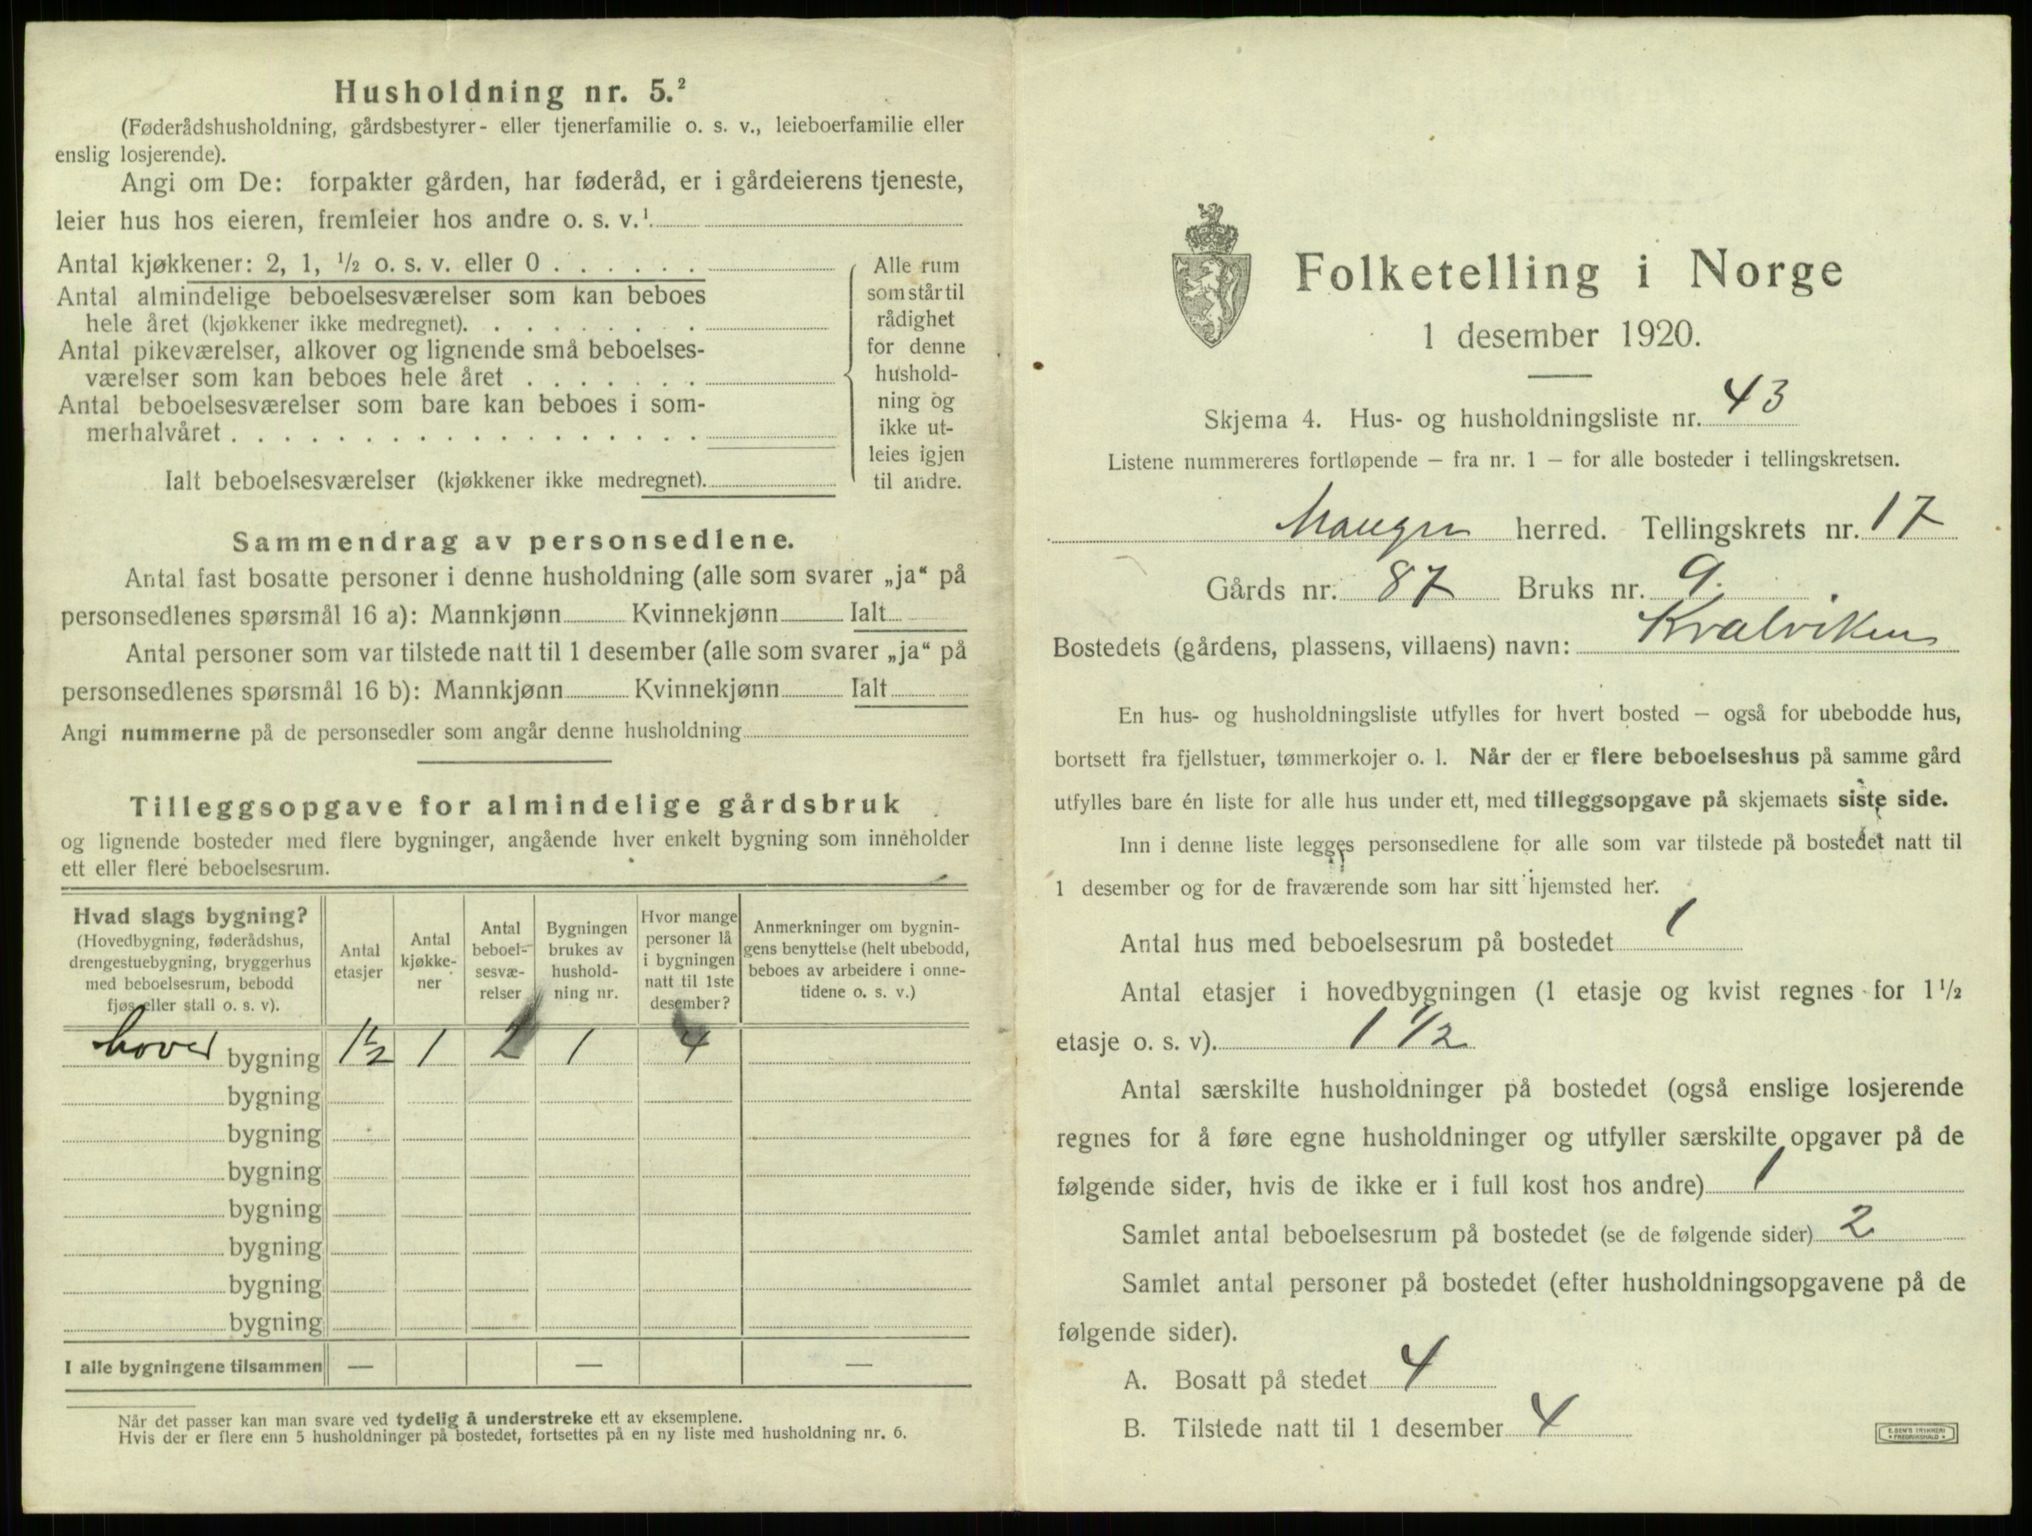 Husholdning nr. 5.²
(Føderådshusholdning, gårdsbestyrer- eller tjenerfamilie o. s. v., leieboerfamilie eller
enslig losjerende).
Angi om De: forpakter gården, har føderåd, er i gårdeierens tjeneste,
leier hus hos eieren, fremleier hos andre o. s. v.¹
Antal kjøkkener: 2, 1, ½ o. s. v. eller 0
Antal almindelige beboelsesværelser som kan beboes
hele året (kjøkkener ikke medregnet).
Antal pikeværelser, alkover og lignende små beboelses-
værelser som kan beboes hele året
Antal beboelsesværelser som bare kan beboes i som-
merhalvåret
Ialt beboelsesværelser (kjøkkener ikke medregnet).
Alle rum
som står til
rådighet
for denne
hushold-
ning og
ikke ut-
leies igjen
til andre.
Sammendrag av personsedlene.
Antal fast bosatte personer i denne husholdning (alle som svarer „ja“ på
personsedlenes spørsmål 16 a): Mannkjønn Kvinnekjønn Ialt
Antal personer som var tilstede natt til 1 desember (alle som svarer „ja“ på
personsedlenes spørsmål 16 b): Mannkjønn Kvinnekjønn Ialt
Angi nummerne på de personsedler som angår denne husholdning
Tilleggsopgave for almindelige gårdsbruk
og lignende bosteder med flere bygninger, angående hver enkelt bygning som inneholder
ett eller flere beboelsesrum.
Hvad slags bygning?
(Hovedbygning, føderådshus,
drengestuebygning, bryggerhus
med beboelsesrum, bebodd
fjøs eller stall o. s. v).
Antal
etasjer
Antal
kjøkke-
ner
Antal
beboel-
sesvæ-
relser
Bygningen
brukes av
hushold-
ning nr.
Hvor mange
personer lå
i bygningen
natt til 1ste
desember?
Anmerkninger om bygnin-
gens benyttelse (helt ubebodd,
beboes av arbeidere i onne-
tidene o. s. v.)
hoved bygning 1½ 1 2 1 4
bygning
bygning
bygning
bygning
bygning
bygning
bygning
I alle bygningene tilsammen — — —
Når det passer kan man svare ved tydelig å understreke ett av eksemplene.
Hvis der er flere enn 5 husholdninger på bostedet, fortsettes på en ny liste med husholdning nr. 6.
Folketelling i Norge
1 desember 1920.
Skjema 4. Hus- og husholdningsliste nr. 43
Listene nummereres fortløpende – fra nr. 1 – for alle bosteder i tellingskretsen.
Manger herred. Tellingskrets nr. 17
Gårds nr. 87 Bruks nr. 9.
Bostedets (gårdens, plassens, villaens) navn: Kvalviken
En hus- og husholdningsliste utfylles for hvert bosted – også for ubebodde hus,
bortsett fra fjellstuer, tømmerkojer o. l. Når der er flere beboelseshus på samme gård
utfylles bare én liste for alle hus under ett, med tilleggsopgave på skjemaets siste side.
Inn i denne liste legges personsedlene for alle som var tilstede på bostedet natt til
1 desember og for de fraværende som har sitt hjemsted her.
Antal hus med beboelsesrum på bostedet 1
Antal etasjer i hovedbygningen (1 etasje og kvist regnes for 1½
etasje o. s. v). 1½
Antal særskilte husholdninger på bostedet (også enslige losjerende
regnes for å føre egne husholdninger og utfyller særskilte opgaver på de
følgende sider, hvis de ikke er i full kost hos andre) 1
Samlet antal beboelsesrum på bostedet (se de følgende sider) 2
Samlet antal personer på bostedet (efter husholdningsopgavene på de
følgende sider).
A. Bosatt på stedet 4
B. Tilstede natt til 1 desember 4